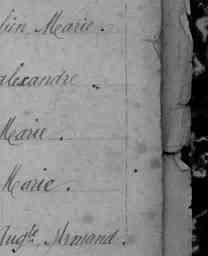 bin Marie.
alexandre.
Marie.
Marie.
Augte. Armand.